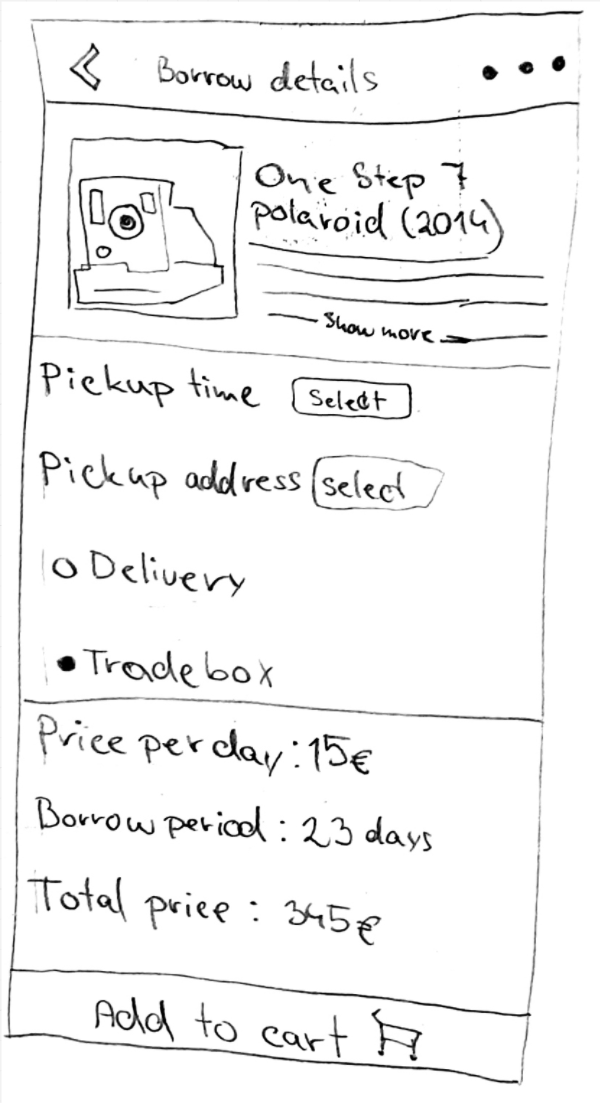 Borrow details
One Step 7
polaroid (2014)
Show more
Pickup time Select
Pickup address select
Delivery
Tradebox
Price per day: 15€
Borrow period: 23 days
Total price: 345€
Add to cart